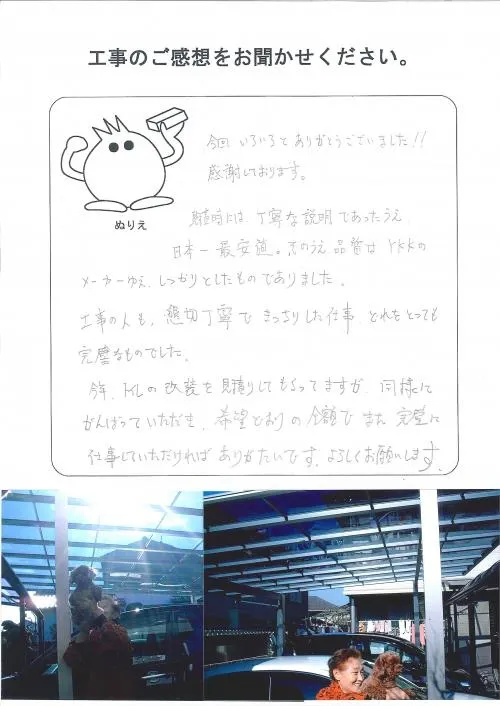 工事のご感想をお聞かせください。
今回 いろいろと ありがとうございました!!
感謝しております。
ぬりえ
見積時には、丁寧な説明であったうえ
日本一最安値。そのうえ 品質は YKKの
メーカーゆえ、しっかりとしたものでありました。
工事の人も、懇切丁寧で きっちりした仕事 どれをとっても
完璧なものでした。
今年、トイレの改装を見積りしてもらってますが、同様に
がんばっていただき、希望どおりの金額で また 完璧に
仕事していただければ ありがたいです。よろしくお願いします。